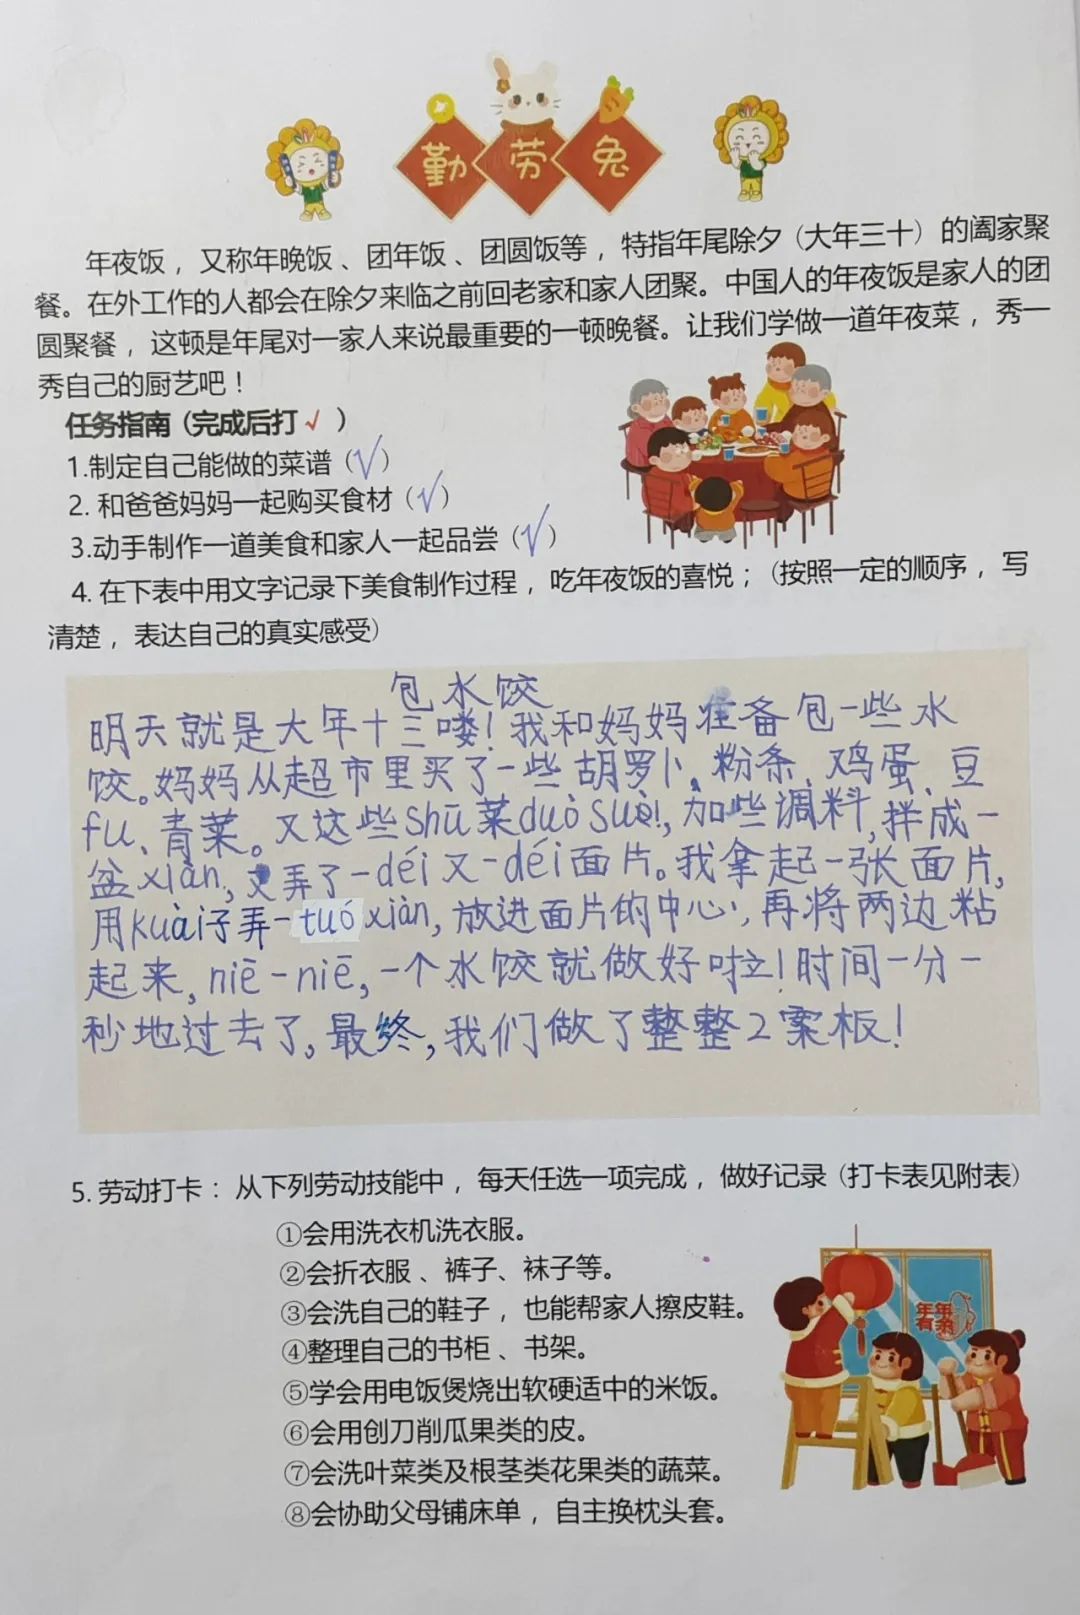 勤劳兔
年夜饭，又称年晚饭、团年饭、团圆饭等，特指年尾除夕（大年三十）的阖家聚
餐。在外工作的人都会在除夕来临之前回老家和家人团聚。中国人的年夜饭是家人的团
圆聚餐，这顿是年尾对一家人来说最重要的一顿晚餐。让我们学做一道年夜菜，秀一
秀自己的厨艺吧！
任务指南（完成后打√）
1.制定自己能做的菜谱（√）
2. 和爸爸妈妈一起购买食材（√）
3.动手制作一道美食和家人一起品尝（√）
4. 在下表中用文字记录下美食制作过程，吃年夜饭的喜悦；（按照一定的顺序，写
清楚，表达自己的真实感受）
包水饺
明天就是大年十三喽！我和妈妈准备包一些水
饺。妈妈从超市里买了一些胡罗卜、粉条、鸡蛋、豆
fu、青菜。又这些shū菜duò suì，加些调料，拌成一
盆xiàn，又弄了一déi又一déi面片。我拿起一张面片，
用kuài子弄一tuó xiàn，放进面片的中心，再将两边粘
起来，niē一niē，一个水饺就做好啦！时间一分一
秒地过去了，最终，我们做了整整2案板！
5. 劳动打卡：从下列劳动技能中，每天任选一项完成，做好记录（打卡表见附表）
①会用洗衣机洗衣服。
②会折衣服、裤子、袜子等。
③会洗自己的鞋子，也能帮家人擦皮鞋。
④整理自己的书柜、书架。
⑤学会用电饭煲烧出软硬适中的米饭。
⑥会用刨刀削瓜果类的皮。
⑦会洗叶菜类及根茎类花果类的蔬菜。
⑧会协助父母铺床单，自主换枕头套。
年年
有余